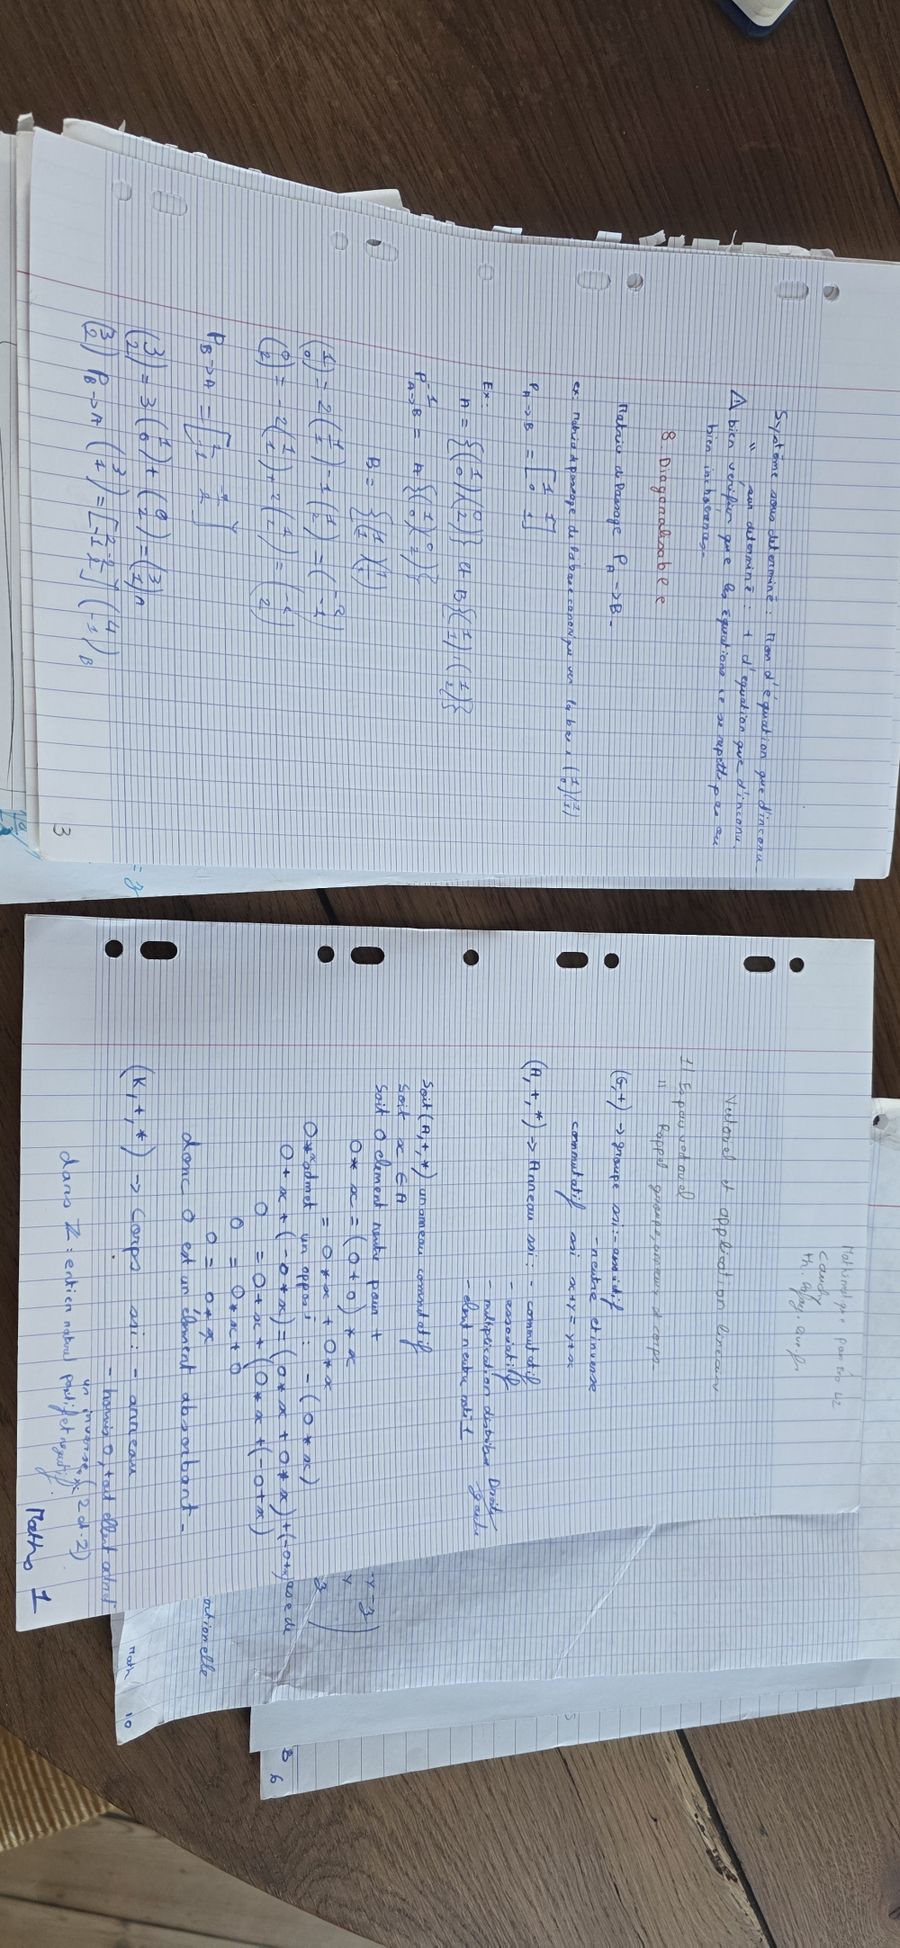 Système sous determiné : Mon d'équation que d'inconu
" sur determiné : + d'equation que d'inconu.
⚠ bien vérifier que les équations ne se repette pas ou
bien incohérentes.
8 Diagonalisable
Matrice de Passage P A->B.
ex: matrice de passage de la base canonique vers la base (1 0)(1 1)
P A->B = [1 1 0 1]
Ex:
A = {(1 0)(0 2)} et B{(1 1),(1 2)}
P⁻¹ A->B = A{(1 0)(0 2)}
B = {(1 1)(1 2)}
(1 0) = 2(1 1) - 1(1 2) = (2 -1)
(0 2) = -2(1 1) + 2(1 2) = (-2 2)
P B->A = [2 -2 -1 2]
(3 2) = 3(1 0) + (0 2) = (3 1)A
(3 2) P B->A (3 1) = [2 -2 -1 2] (4 -1)B
3
Vectoriel et application lineaire
1) Espace vectoriel
" Rappel groupe, anneau et corps.
(G,+) -> groupe ssi: - associatif
- neutre et inverse
commutatif ssi x+y = y+x
(A,+,*) -> Anneau ssi : - commutatif
- associatif
- multiplication distributive Droite
gauche
- element neutre noté 1
Soit (A,+,*) un anneau commutatif
Soit x ∈ A
Soit 0 element neutre pour +
0*x = (0+0)*x
= 0*x + 0*x
0*x admet un opposé : -(0*x)
0+x+(-0*x) = (0*x+0*x)+(-0*x)
0 = 0+x+(0*x+(-0+x)
0 = 0*x+0
0 = 0*x
donc 0 est un élément absorbant.
(K,+,*) -> Corps ssi : - anneau
- hormis 0, tout element admet
un inverse (2 et 2)
dans Z : entien naturel positif et negatif.
Maths 1
ortionelle
math 10
6